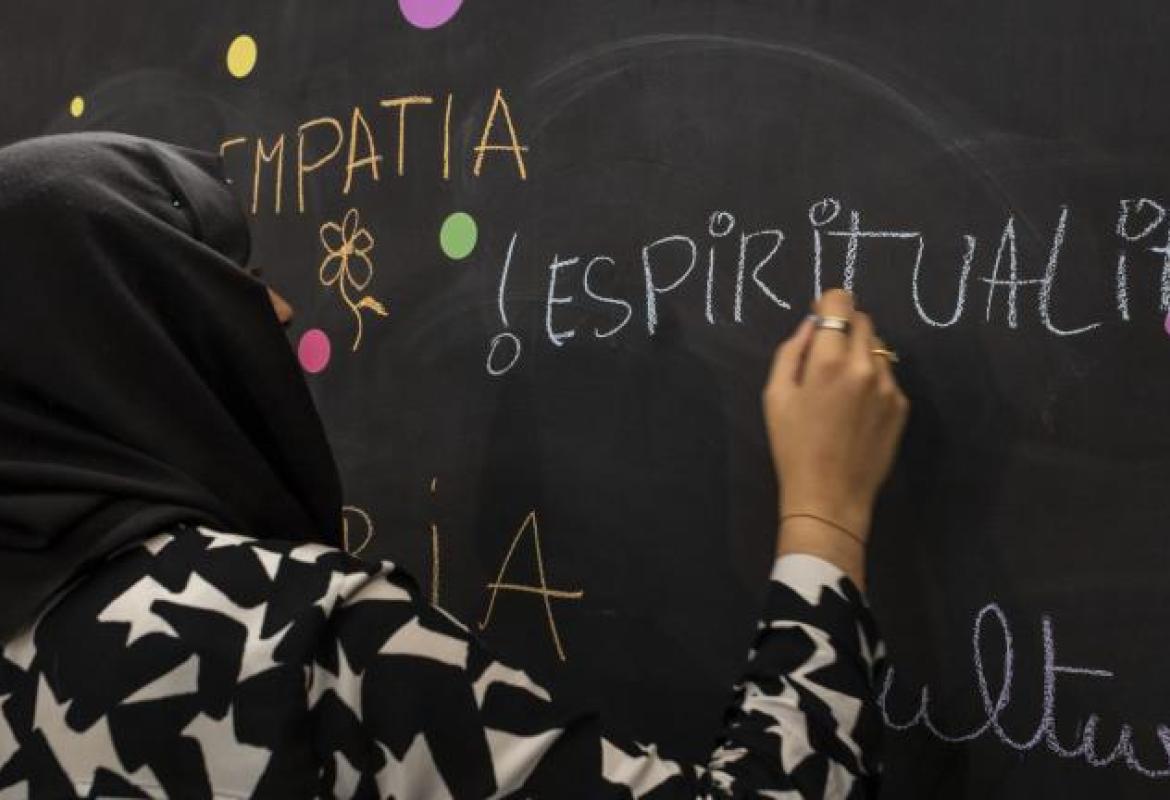 EMPATIA
!ESPiRiTUALiT
RiA
ultur